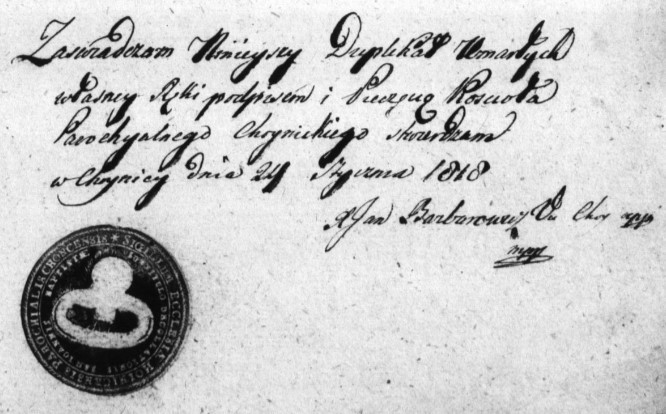 Zaswiadczam Ninieyszy Duplikat Umarłych
własney Ręki podpisem i Pieczęcią Kościoła
Parochyalnego Choynickiego stwierdzam
w Choynicy dnia 24 Stycznia 1818
X Jan Barbarowicz Chor
mpp
SIGILLUM ECCLESIAE PAROCHIALIS